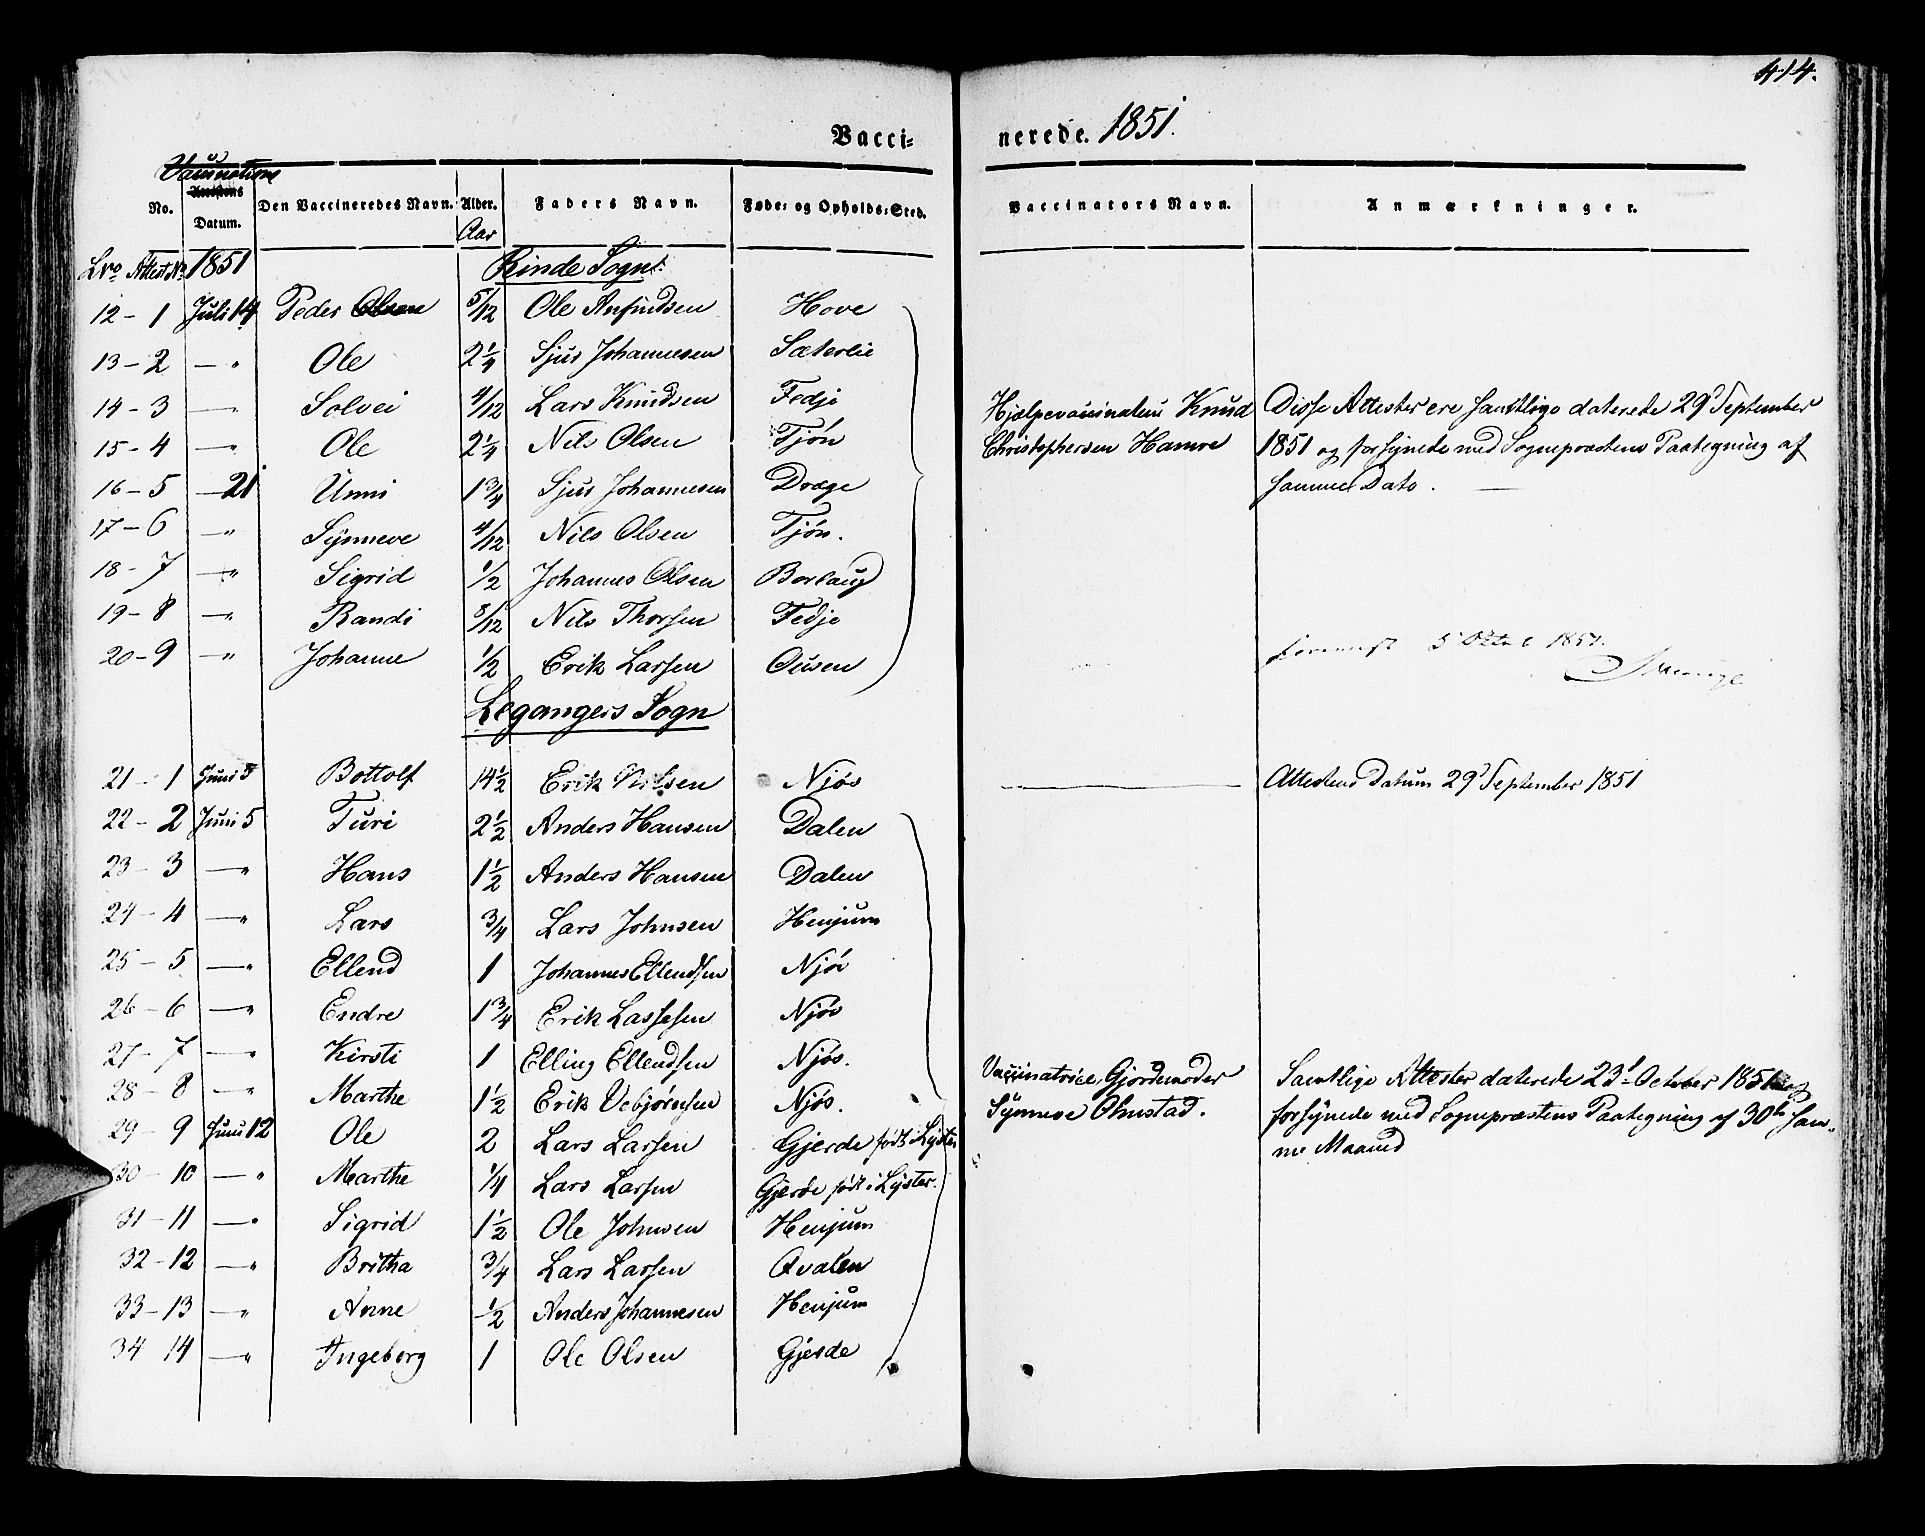 414.
Vacci- nerede. 1851.
Vaccinations
No. Attestens Datum. Den Vaccineredes Navn. Alder. Faders Navn. Føde- og Opholds-Sted. Vaccinators Navn. Anmærkninger.
Aar
Lro Attest No 1851 Rinde Sogn.
12 - 1 Juli 14 Peder Olsen 5/12 Ole Anfindsen Hove
13 - 2 — " Ole 2 1/4 Sjur Johannesen Sæterlie
14 - 3 — " Solvei 4/12 Lars Knudsen Fedje
15 - 4 — " Ole 2 1/4 Nils Olsen Tjøn
16 - 5 — 21 Unni 1 3/4 Sjur Johannesen Dræge
17 - 6 — " Synneve 4/12 Nils Olsen Tjøn.
18 - 7 — " Sigrid 1/2 Johannes Olsen Borlaug
19 - 8 — " Randi 8/12 Nils Thorsen Fedje
20 - 9 — " Johanne 1/2 Erik Larsen Ousen
Hjælpevaccinateur Knud
Christophersen Hamre
Disse Attester ere samtlige daterede 29d September
1851 og forsynede med Sognepræstens Paategning af
samme Dato.
5 1851.
Legangers Sogn
21 - 1 Juni 3 Bottolf 14 1/2 Erik Nilsen Njøs — Attestens Datum 29d September 1851
22 - 2 Juni 5 Turi 2 1/2 Anders Hansen Dalen
23 - 3 — " Hans 1 1/2 Anders Hansen Dalen
24 - 4 — " Lars 3/4 Lars Johnsen Henjum
25 - 5 — " Ellend 1 Johannes Ellendsen Njøs
26 - 6 — " Endre 1 3/4 Erik Lassesen Njøs
27 - 7 — " Kirsti 1 Elling Ellendsen Njøs.
28 - 8 — " Marthe 1 1/2 Erik Vebjørnsen Njøs.
29 - 9 Juni 12 Ole 2 Lars Larsen Gjerde født i Lyster
30 - 10 — " Marthe 1/4 Lars Larsen Gjerde født i Lyster.
31 - 11 — " Sigrid 1 1/2 Ole Johnsen Henjum
32 - 12 — " Britha 3/4 Lars Larsen Qvalen
33 - 13 — " Anne 1/2 Anders Johannesen Henjum
34 14 — " Ingeborg 1 Ole Olsen Gjerde
Vaccinatrice, Gjordemoder
Synneve Olmstad.
Samtlige Attester daterede 23d October 1851 og
forsynede med Sognepræstens Paategning af 30te sam-
me Maaned